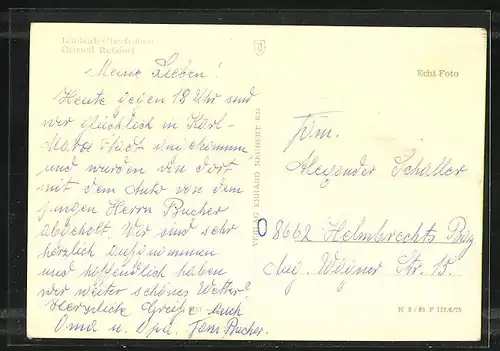 Limbach-Oberfrohna
Ortsteil Rußdorf
Meine Lieben!
Heute gegen 18 Uhr sind
wir glücklich in Karl-
Marx Stadt angekommen
und wurden von dort
mit dem Auto von dem
jungen Herrn Bucher
abgeholt. Wir sind sehr
herzlich aufgenommen
und hoffendlich haben
wir weiter schönes Wetter!
Herzliche Grüße Euch
Oma u. Opa. Fam Bucher.
VERLAG ERHARD NEUBERT KG
Echt Foto
Fam.
Alexander Schaller
8662 Helmbrechts
Aug. Wagner Str. 15.